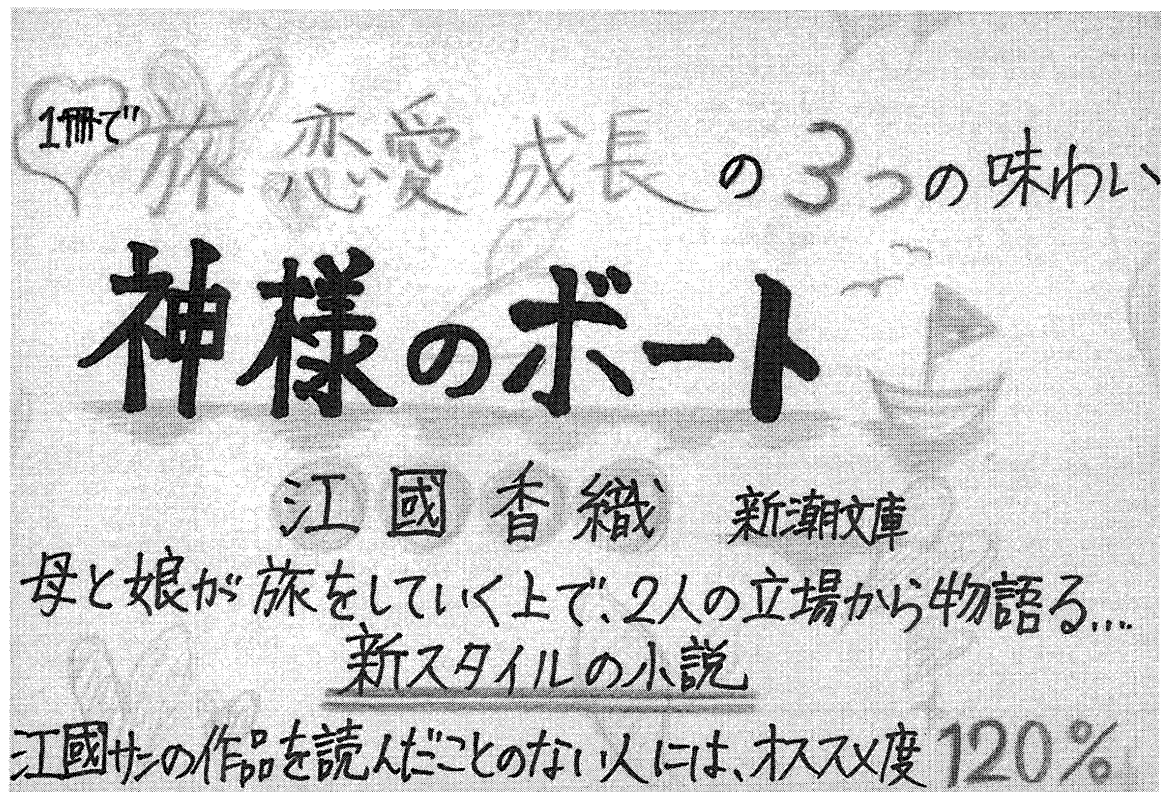 1冊で 旅 恋愛 成長 の 3つの 味わい
神様のボート
江國香織 新潮文庫
母と娘が旅をしていく上で、2人の立場から物語る...
新スタイルの小説
江國サンの作品を読んだことのない人には、オススメ度120%